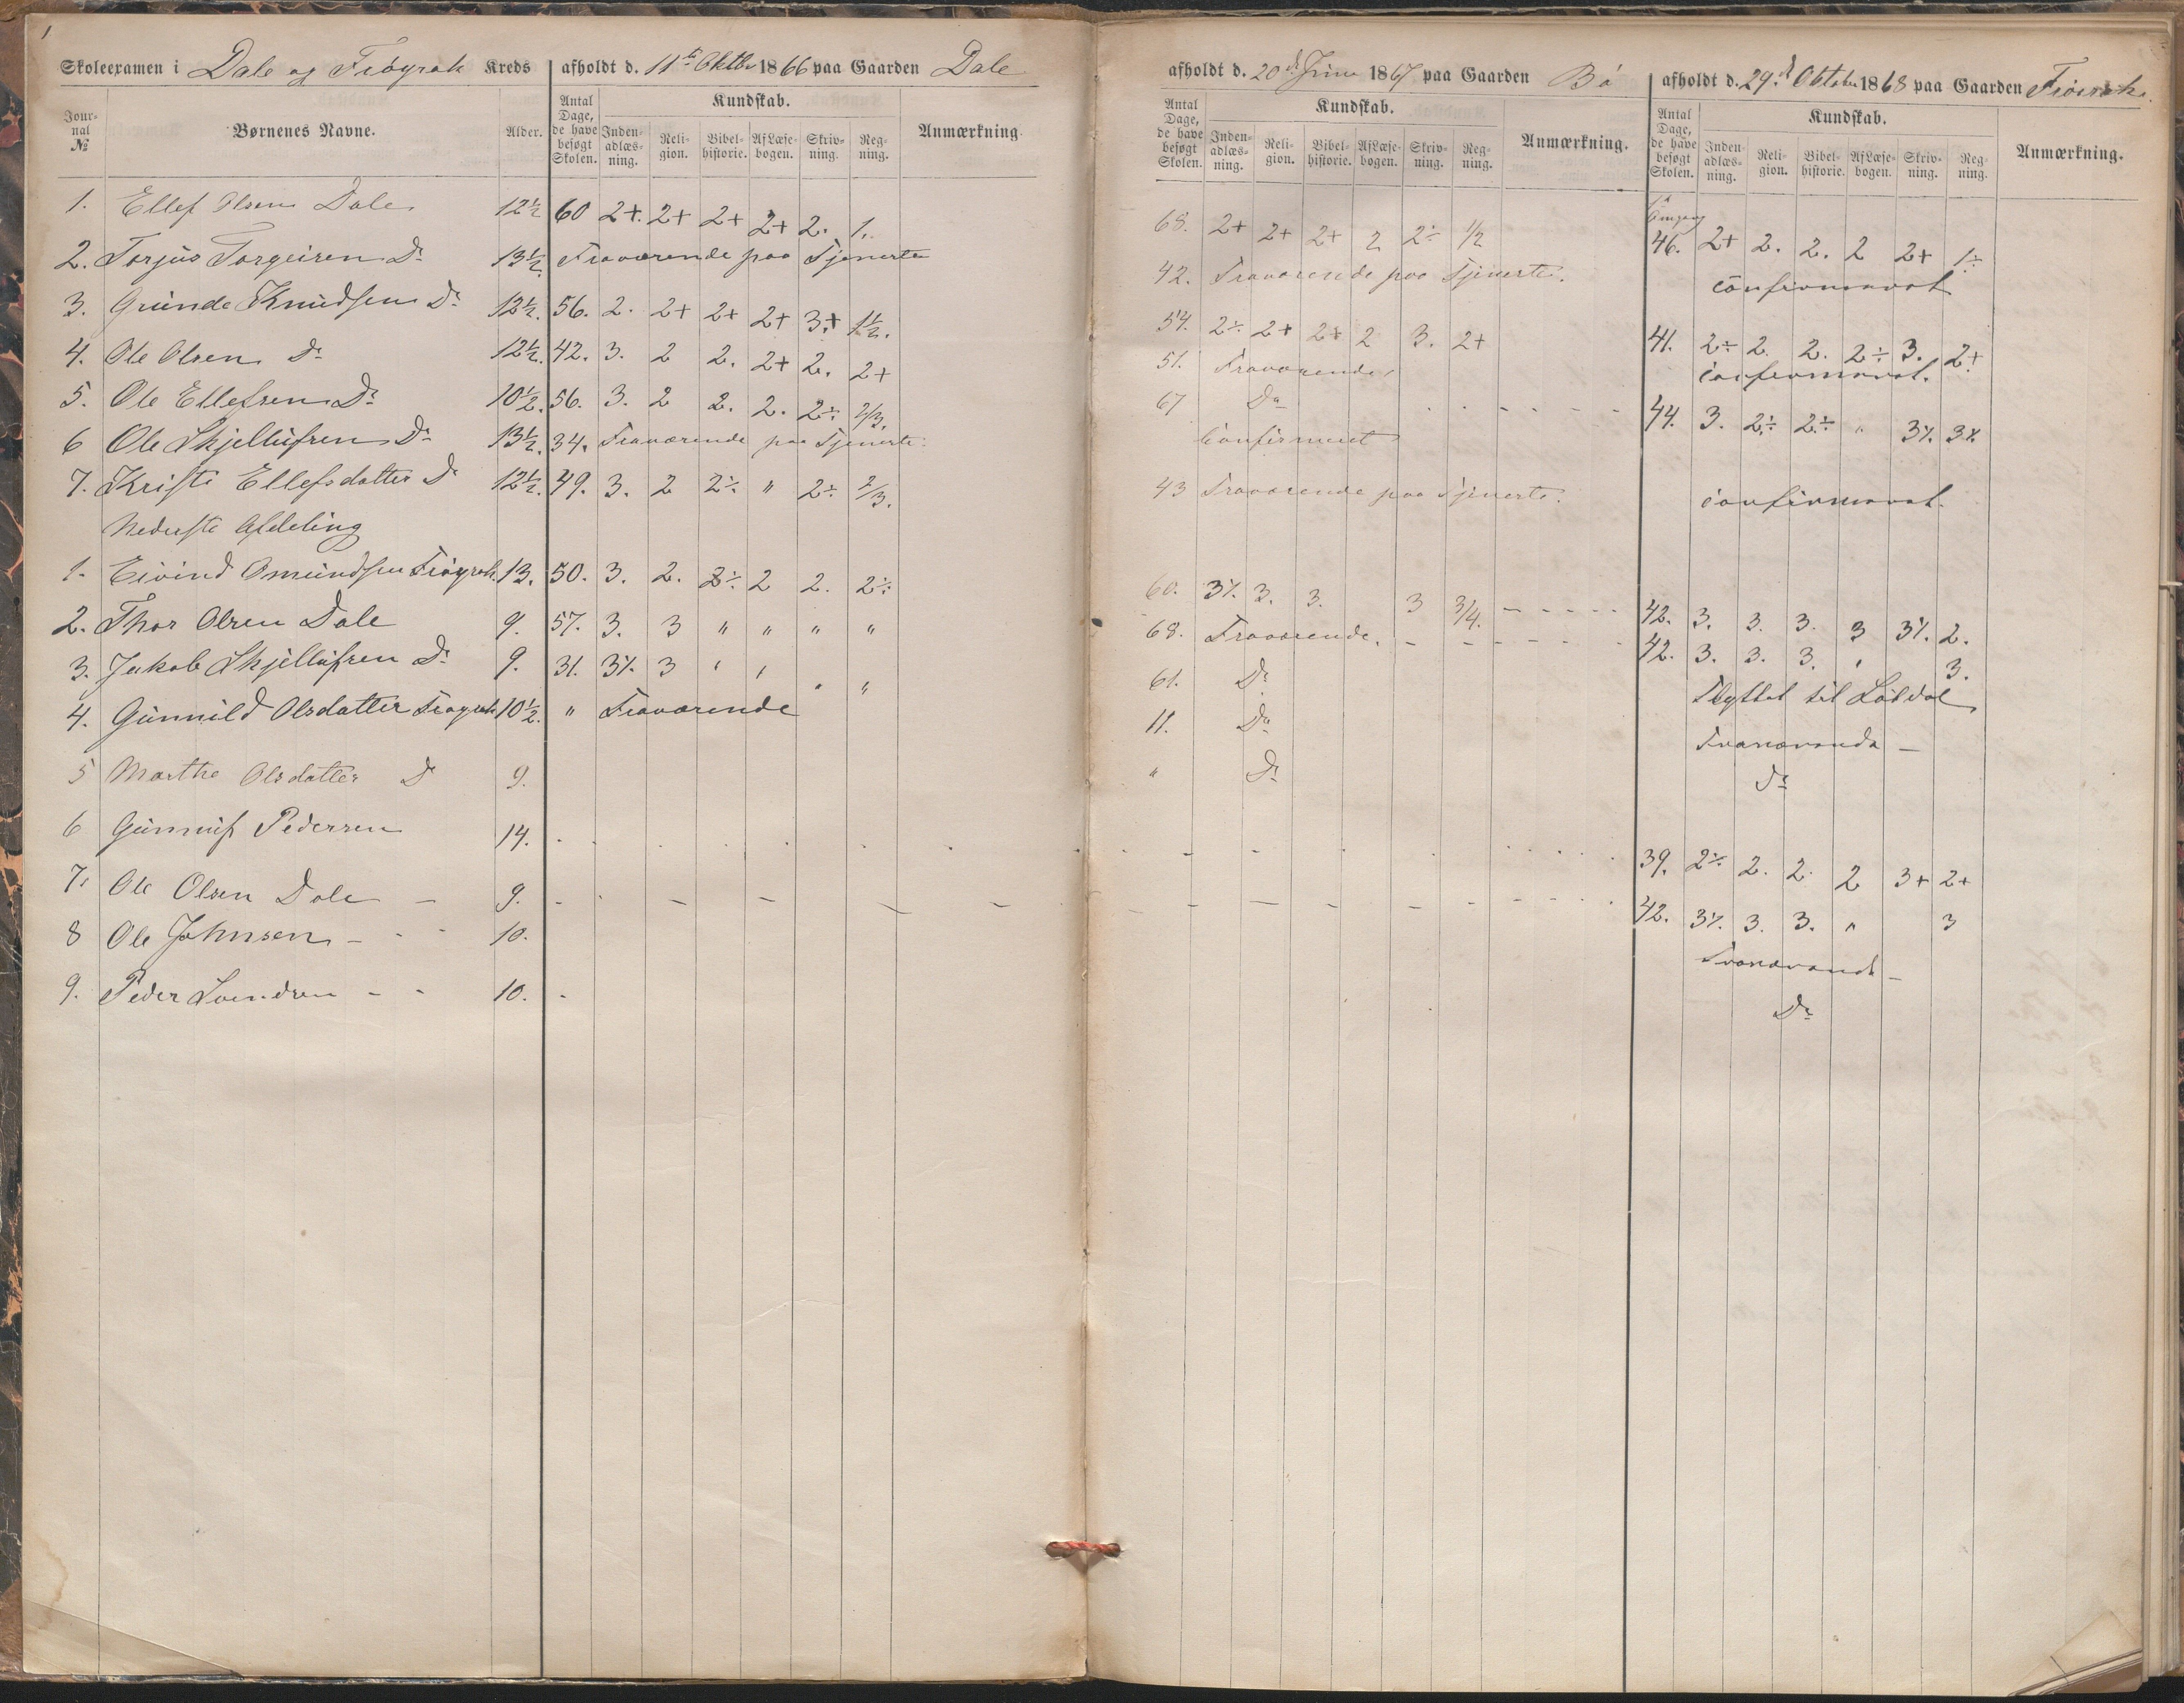 1
Skoleexamen i Dale og Frøyrak Kreds afholdt d. 11te Oktbr 1866 paa Gaarden Dale
Jour-nal № Børnenes Navne. Alder. Antal Dage, de have besøgt Skolen. Kundskab. Inden-adlæs-ning. Reli-gion. Bibel-historie. Af Læse-bogen. Skriv-ning. Reg-ning. Anmærkning.
1. Ellef Olsen Dale 12½ 60 2+. 2+ 2+ 2+ 2. 1.
2. Torjus Torgeirsen Do 13½. Fraværende paa Tjeneste
3. Gunde Knudsen Do 12½. 56. 2. 2+ 2+ 2+ 3+ 1½.
4. Ole Olsen Do 12½. 42. 3. 2 2. 2+ 2. 2+
5. Ole Ellefsen Do 10½. 56. 3. 2 2. 2. 2÷. 2/3.
6 Ole Skjellufsen Do 13½. 34. Fraværende paa Tjeneste.
7. Kristi Ellefsdatter Do 12½. 49. 3. 2 2÷. " 2÷ 2/3.
Nederste Afdeling
1. Eivind Omundsen Frøyrak. 13. 50. 3. 2. 2÷ 2 2. 2÷
2. Thor Olsen Dale 9. 57. 3. 3 " " " "
3. Jakob Skjellufsen Do 9. 31. 3÷. 3 " " " "
4. Gunnild Olsdatter Frøyrak 10½. " Fraværende
5 Marthe Olsdatter Do 9.
6 Gunnuf Pedersen 14.
7. Ole Olsen Dale – 9.
8 Ole Johnsen – - - 10.
9. Peder Svendsen - - 10.
afholdt d. 20de Juni 1867 paa Gaarden Bø
Antal Dage, de have besøgt Skolen. Kundskab. Inden-adlæs-ning. Reli-gion. Bibel-historie. Af Læse-bogen. Skriv-ning. Reg-ning. Anmærkning.
68. 2+ 2+ 2+ 2 2÷ 1/2
42. Fraværende paa Tjeneste.
54. 2÷. 2+ 2+ 2 3. 2+
51. Fraværende
67 Do
Confirmeret
43 Fraværende paa Tjeneste.
60. 3÷. 3. 3. 3 3/4.
68. Fraværende.
61. Do
11. Do
" Do
afholdt d. 29de Oktober 1868 paa Gaarden Frøirak.
Antal Dage, de have besøgt Skolen. Kundskab. Inden-adlæs-ning. Reli-gion. Bibel-historie. Af Læse-bogen. Skriv-ning. Reg-ning. Anmærkning.
46. 2+ 2. 2. 2 2+ 1÷
confirmeret
41. 2÷ 2. 2. 2÷ 3. 2+
confirmeret.
44. 3. 2÷ 2÷ " 3÷. 3÷.
confirmeret.
42. 3. 3. 3. 3 3÷. 2.
42. 3. 3. 3. " 3.
Flyttet til
Fraværende –
Do
39. 2÷ 2. 2. 2 3+ 2+
42. 3÷. 3. 3. " 3
Fraværende –
Do